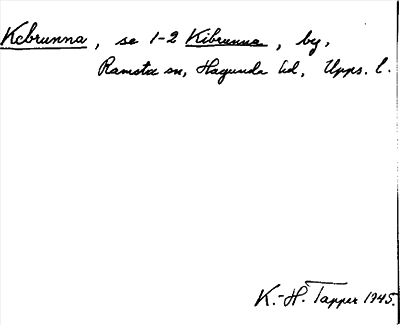 Kebrunna, se 1-2 Kibrunna, by,
Ramsta sn, Hagunda hd, Upps. l.
K.-H. Tapper 1945.